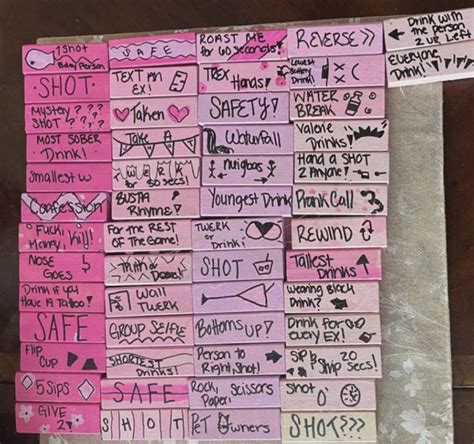 1 Shot
Bday Person
SHOT.
Mystery ? ? ?
SHOT ? ? ?
MOST SOBER
Drink!
Smallest
Confession
Fuck,
Marry, Kill!
NOSE
GOES
Drink if you
Have A Tattoo!
SAFE
Flip
Cup
5 SIPS
GIVE
2
SAFE
TEXT AN
EX!
Taken
Take A
TWERK
for 30 secs!
BUSTA
Rhyme!
For the REST
OF The Game!
Truth or
Dare!
Wall
TWERK
GROUP SELFIE
SHORTEST
Drinks!
SAFE
SHOT
ROAST ME
for 60 seconds!
TREX
Hands!
SAFETY!
Waterfall
Youngest Drink
TWERK or
Drink!
SHOT
BottomS UP!
Person to
Right, Shot!
Rock, Scissors
Paper!
PET Owners
REVERSE >>
Lowest
Battery
Drink!
WATER
BREAK
Valerie
Drinks!
Hand a SHOT
2 Anyone!
Prank Call
REWIND
Tallest
Drinks
Wearing Black
Drink?
Drink for
every EX!
Sip Sip 20
Secs!
Shot
SHOT???
Drink with
the person
2 UR Left
Everyone
Drink!